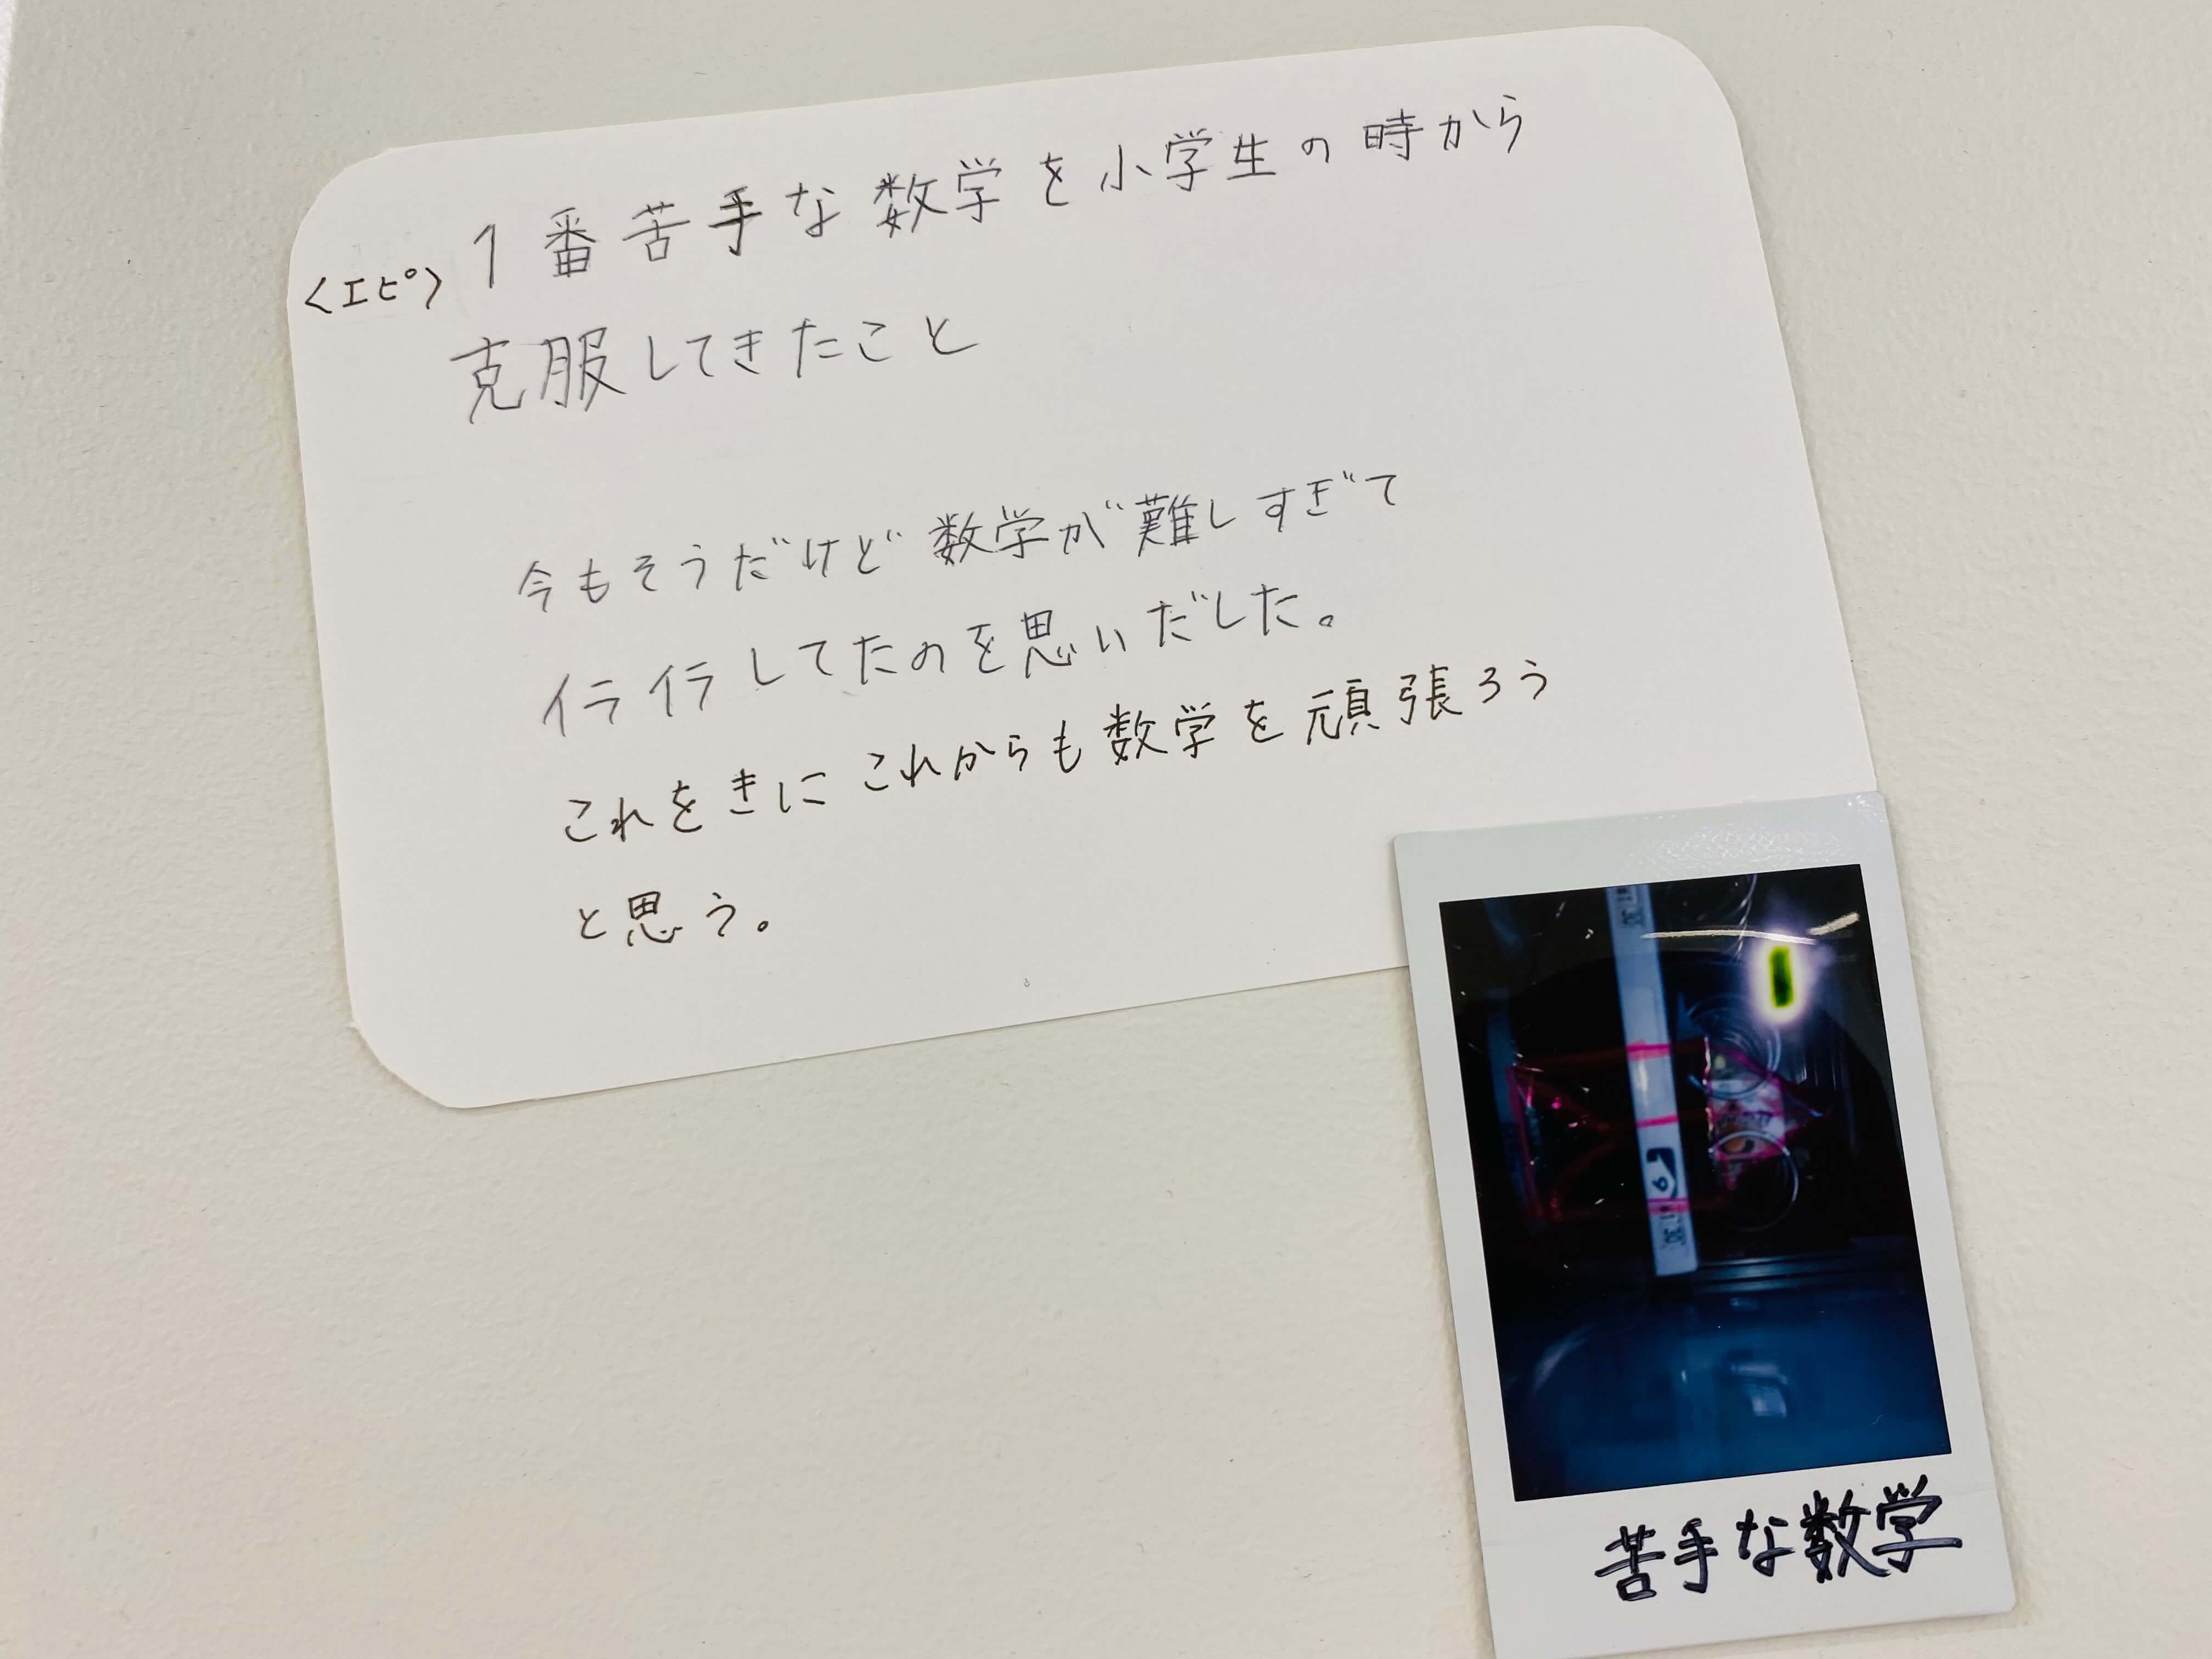 〈エピ〉1番苦手な数学を小学生の時から
克服してきたこと
今もそうだけど数学が難しすぎて
イライラしてたのを思いだした。
これをきにこれからも数学を頑張ろう
と思う。
苦手な数学